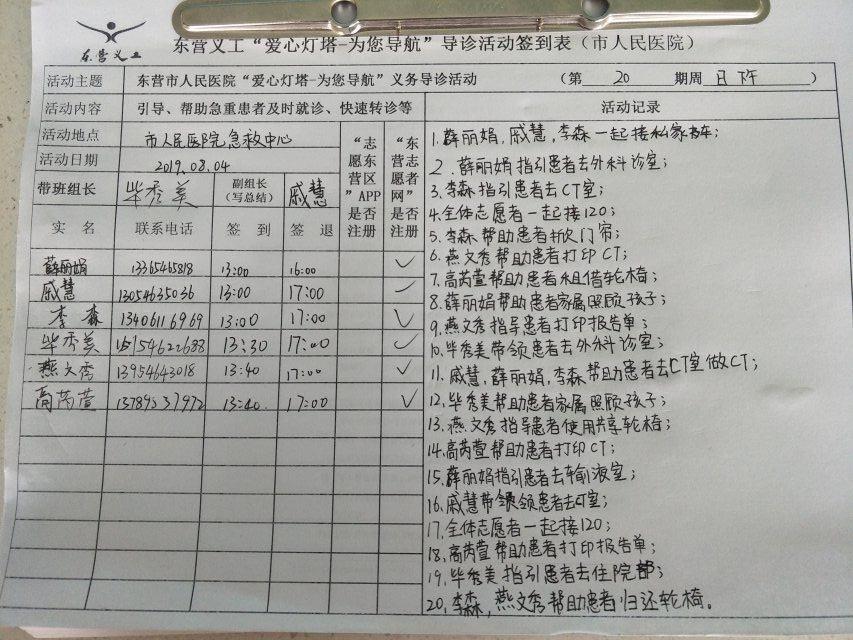 东营义工
东营义工“爱心灯塔-为您导航”导诊活动签到表（市人民医院）
活动主题 东营市人民医院“爱心灯塔-为您导航”义务导诊活动 （第 20 期周 日下午 ）
活动内容 引导、帮助急重患者及时就诊、快速转诊等 活动记录
活动地点 市人民医院急救中心
活动日期 2019.08.04
带班组长 毕秀美 副组长（写总结） 戚慧
“志愿东营区”APP是否注册
“东营志愿者网”是否注册
实名 联系电话 签到 签退
薛丽娟 13365465818 13:00 16:00 ✓
戚慧 13054635036 13:00 17:00 ✓
李森 13406116969 13:00 17:00 ✓
毕秀美 15154622688 13:30 17:00 ✓
燕文秀 13954643018 13:40 17:00 ✓
高芮萱 13789537972 13:40 17:00 ✓
1.薛丽娟,戚慧,李森一起接私家车;
2.薛丽娟指引患者去外科诊室;
3.李森指引患者去CT室;
4.全体志愿者一起接120;
5.李森帮助患者掀门帘;
6.燕文秀帮助患者打印CT;
7.高芮萱帮助患者租借轮椅;
8.薛丽娟帮助患者家属照顾孩子;
9.燕文秀指导患者打印报告单;
10.毕秀美带领患者去外科诊室;
11.戚慧,薛丽娟,李森帮助患者去CT室做CT;
12.毕秀美帮助患者家属照顾孩子;
13.燕文秀指导患者使用共享轮椅;
14.高芮萱帮助患者打印CT;
15.薛丽娟指引患者去输液室;
16.戚慧带领患者去CT室;
17.全体志愿者一起接120;
18.高芮萱帮助患者打印报告单;
19.毕秀美指引患者去住院部;
20.李森,燕文秀帮助患者归还轮椅。